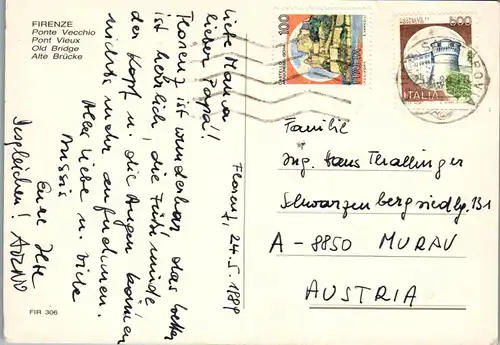 FIRENZE
Ponte Vecchio
Pont Vieux
Old Bridge
Alte Brücke
Florenz, 24.5.1989
Liebe Mama
lieber Papa!!
Florenz ist wunderbar, das Wetter
ist herrlich, die Füße müde
der Kopf u. die Augen können
nichts mehr aufnehmen.
Alles Liebe u. dicke
Bussis
Eure
Desgleichen!
FIR 306
100
ITALIA
500
ITALIA
Familie
Ing. Hans Thallinger
Schwarzenbergsiedlg. 131
A - 8850 MURAU
AUSTRIA